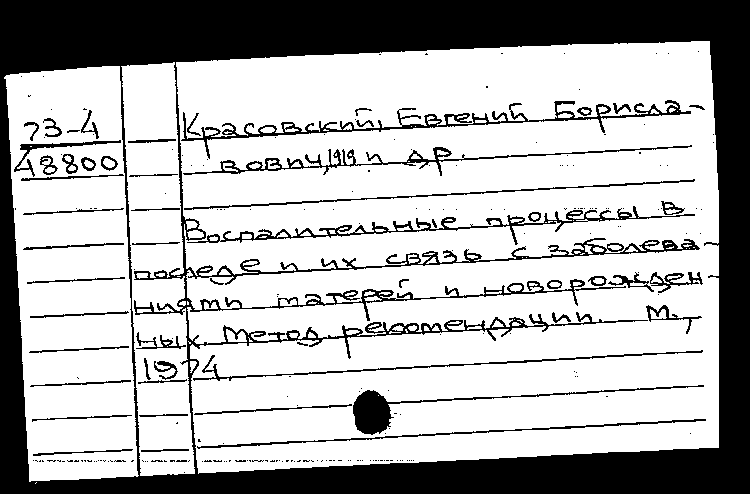 73-4
48800
Красовский, Евгений Борисла-
вович, 1919 и др.
Воспалительные процессы в
последе и их связь с заболева-
ниями матерей и новорожден-
ных. Метод. рекомендации. М.,
1974.